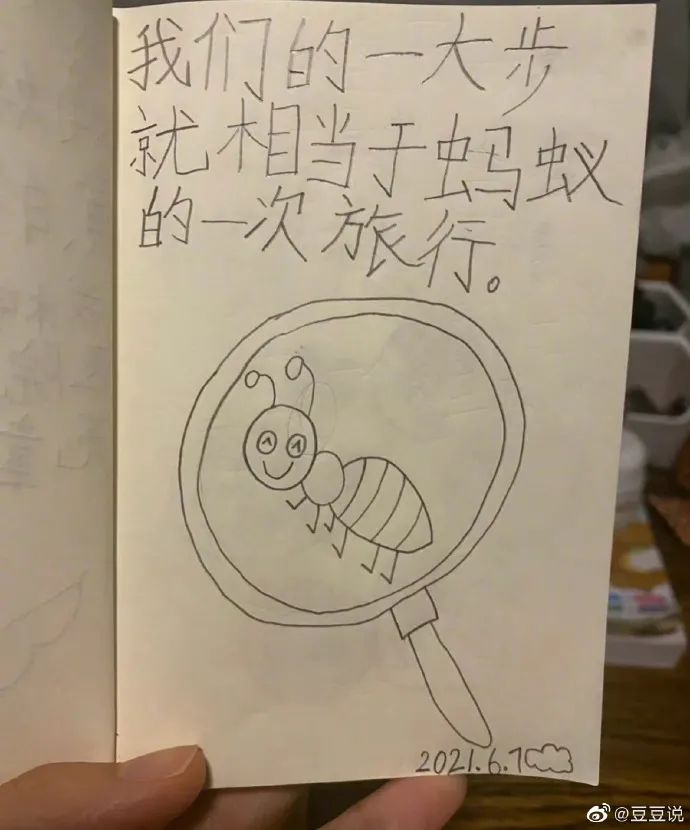 我们的一大步
就相当于蚂蚁
的一次旅行。
2021.6.1
@豆豆说